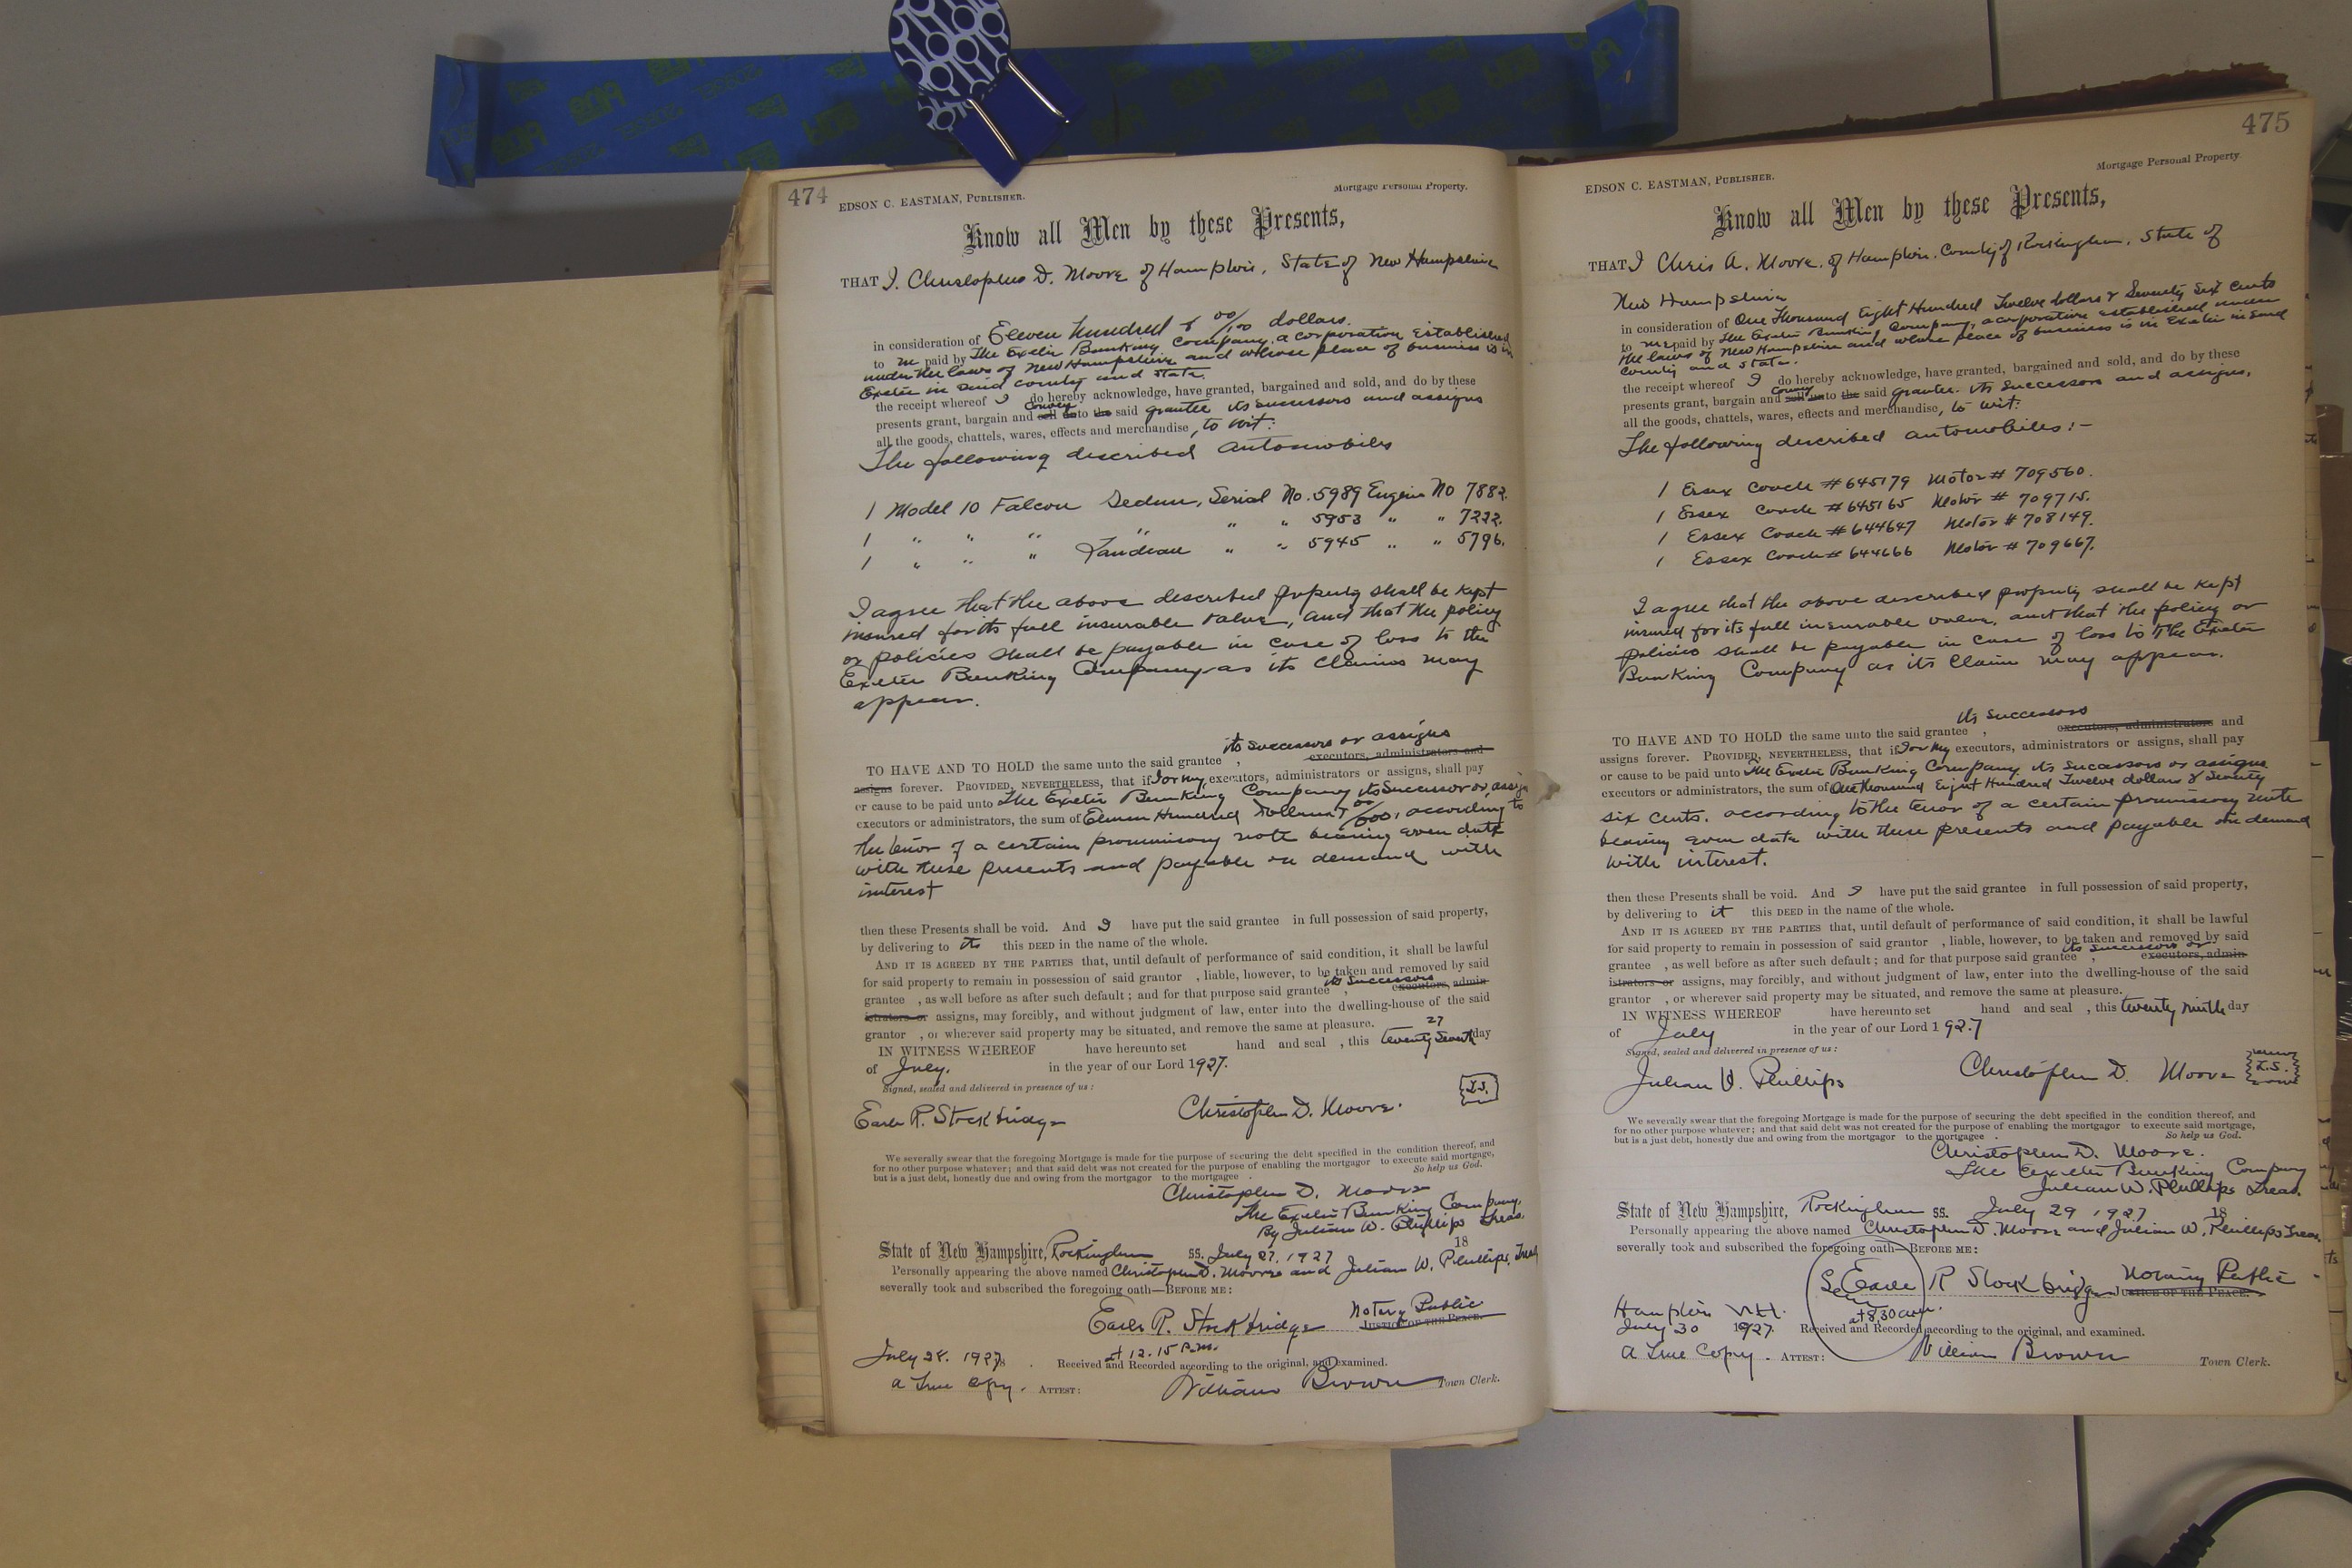 474
EDSON C. EASTMAN, PUBLISHER.
Mortgage Personal Property.
Know all Men by these Presents,
THAT I. Christopher D. Moore of Hampton, State of New Hampshire
in consideration of Eleven Hundred & 00/100 dollars.
to me paid by The Exeter Banking Company, a corporation established
under the laws of New Hampshire and whose place of business is in
Exeter in said county and state.
the receipt whereof I do hereby acknowledge, have granted, bargained and sold, and do by these
convey
presents grant, bargain and sell unto the said grantee its successors and assigns
all the goods, chattels, wares, effects and merchandise, to wit:
The following described Automobiles
1 Model 10 Falcon Sedan, Serial No. 5989 Engine No 7882.
1 " " " " " " 5953 " " 7222.
1 " " " Landeau " " 5945 " " 5796.
I agree that the above described property shall be kept
insured for its full insurable value, and that the policy
or policies shall be payable in case of loss to the
Exeter Banking Company as its claims may
appear.
its successors or assigns
TO HAVE AND TO HOLD the same unto the said grantee , executors, administrators and
assigns forever. PROVIDED, NEVERTHELESS, that if I or my executors, administrators or assigns, shall pay
or cause to be paid unto The Exeter Banking Company its Successor or assigns
executors or administrators, the sum of Eleven Hundred Dollars & 00/000, according to
the tenor of a certain promissory note bearing even date
with these presents and payable on demand with
interest
then these Presents shall be void. And I have put the said grantee in full possession of said property,
by delivering to its this DEED in the name of the whole.
AND IT IS AGREED BY THE PARTIES that, until default of performance of said condition, it shall be lawful
for said property to remain in possession of said grantor , liable, however, to be taken and removed by said
its Successors
grantee , as well before as after such default; and for that purpose said grantee , executors, admin-
istrators or assigns, may forcibly, and without judgment of law, enter into the dwelling-house of the said
grantor , or wherever said property may be situated, and remove the same at pleasure.
27
IN WITNESS WHEREOF have hereunto set hand and seal , this twenty seventh day
of July. in the year of our Lord 1927.
Signed, sealed and delivered in presence of us:
Earle R. Stockbridge
Christopher D. Moore.
L.S.
We severally swear that the foregoing Mortgage is made for the purpose of securing the debt specified in the condition thereof, and
for no other purpose whatever; and that said debt was not created for the purpose of enabling the mortgagor to execute said mortgage,
but is a just debt, honestly due and owing from the mortgagor to the mortgagee . So help us God.
Christopher D. Moore
The Exeter Banking Company.
By Julian W. Phillips Treas.
State of New Hampshire, Rockingham ss. July 27, 1927 18
Personally appearing the above named Christopher D. Moore and Julian W. Phillips, Treas
severally took and subscribed the foregoing oath—BEFORE ME:
Earle R. Stockbridge Notary Public
JUSTICE OF THE PEACE.
at 12.15 P.M.
July 28. 1927 Received and Recorded according to the original, and examined.
a True copy. ATTEST: William Brown Town Clerk.
475
EDSON C. EASTMAN, PUBLISHER.
Mortgage Personal Property
Know all Men by these Presents,
THAT I Chris A. Moore, of Hampton. County of Rockingham, State of
New Hampshire
in consideration of One Thousand Eight Hundred Twelve dollars & Seventy Six cents
to me paid by The Exeter Banking Company, a corporation established under
the laws of New Hampshire and whose place of business is in Exeter in said
county and state.
the receipt whereof I do hereby acknowledge, have granted, bargained and sold, and do by these
convey
presents grant, bargain and sell unto the said grantee. its successors and assigns,
all the goods, chattels, wares, effects and merchandise, to wit:
The following described automobiles:-
1 Essex Coach #645179 Motor # 709560.
1 Essex Coach #645165 Motor # 709715.
1 Essex Coach #644647 Motor # 708149.
1 Essex Coach #644666 Motor # 709667.
I agree that the above described property shall be kept
insured for its full insurable value, and that the policy or
policies shall be payable in case of loss to The Exeter
Banking Company as its claim may appear.
its successors
TO HAVE AND TO HOLD the same unto the said grantee , executors, administrators and
assigns forever. PROVIDED, NEVERTHELESS, that if I or my executors, administrators or assigns, shall pay
or cause to be paid unto The Exeter Banking Company its successors or assigns
executors or administrators, the sum of One thousand Eight Hundred Twelve dollars & Seventy
six cents. according to the tenor of a certain promissory note
bearing even date with these presents and payable on demand
with interest.
then these Presents shall be void. And I have put the said grantee in full possession of said property,
by delivering to it this DEED in the name of the whole.
AND IT IS AGREED BY THE PARTIES that, until default of performance of said condition, it shall be lawful
for said property to remain in possession of said grantor , liable, however, to be taken and removed by said
its successors or
grantee , as well before as after such default; and for that purpose said grantee , executors, admin-
istrators or assigns, may forcibly, and without judgment of law, enter into the dwelling-house of the said
grantor , or wherever said property may be situated, and remove the same at pleasure.
IN WITNESS WHEREOF have hereunto set hand and seal , this twenty ninth day
of July in the year of our Lord 1927
Signed, sealed and delivered in presence of us:
Julian W. Phillips
Christopher D. Moore
L.S.
We severally swear that the foregoing Mortgage is made for the purpose of securing the debt specified in the condition thereof, and
for no other purpose whatever; and that said debt was not created for the purpose of enabling the mortgagor to execute said mortgage,
but is a just debt, honestly due and owing from the mortgagor to the mortgagee . So help us God.
Christopher D. Moore.
The Exeter Banking Company
Julian W. Phillips Treas.
State of New Hampshire, Rockingham ss. July 29 1927 18
Personally appearing the above named Christopher D. Moore and Julian W. Phillips Treas.
severally took and subscribed the foregoing oath—BEFORE ME:
Seal
Earle R Stockbridge Notary Public
JUSTICE OF THE PEACE.
Hampton N.H. at 8,30 a.m.
July 30 1927. Received and Recorded according to the original, and examined.
a True Copy. ATTEST: William Brown Town Clerk.